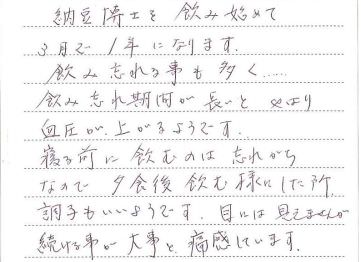 納豆博士を飲み始めて
3月で1年になります.
飲み忘れる事も多く……
飲み忘れ期間が長いとやはり
血圧が、上がるようです.
寝る前に飲むのは忘れがち
なので夕食後飲む様にした所、
調子もいいようです. 目には見えませんが
続ける事が大事と、痛感しています.